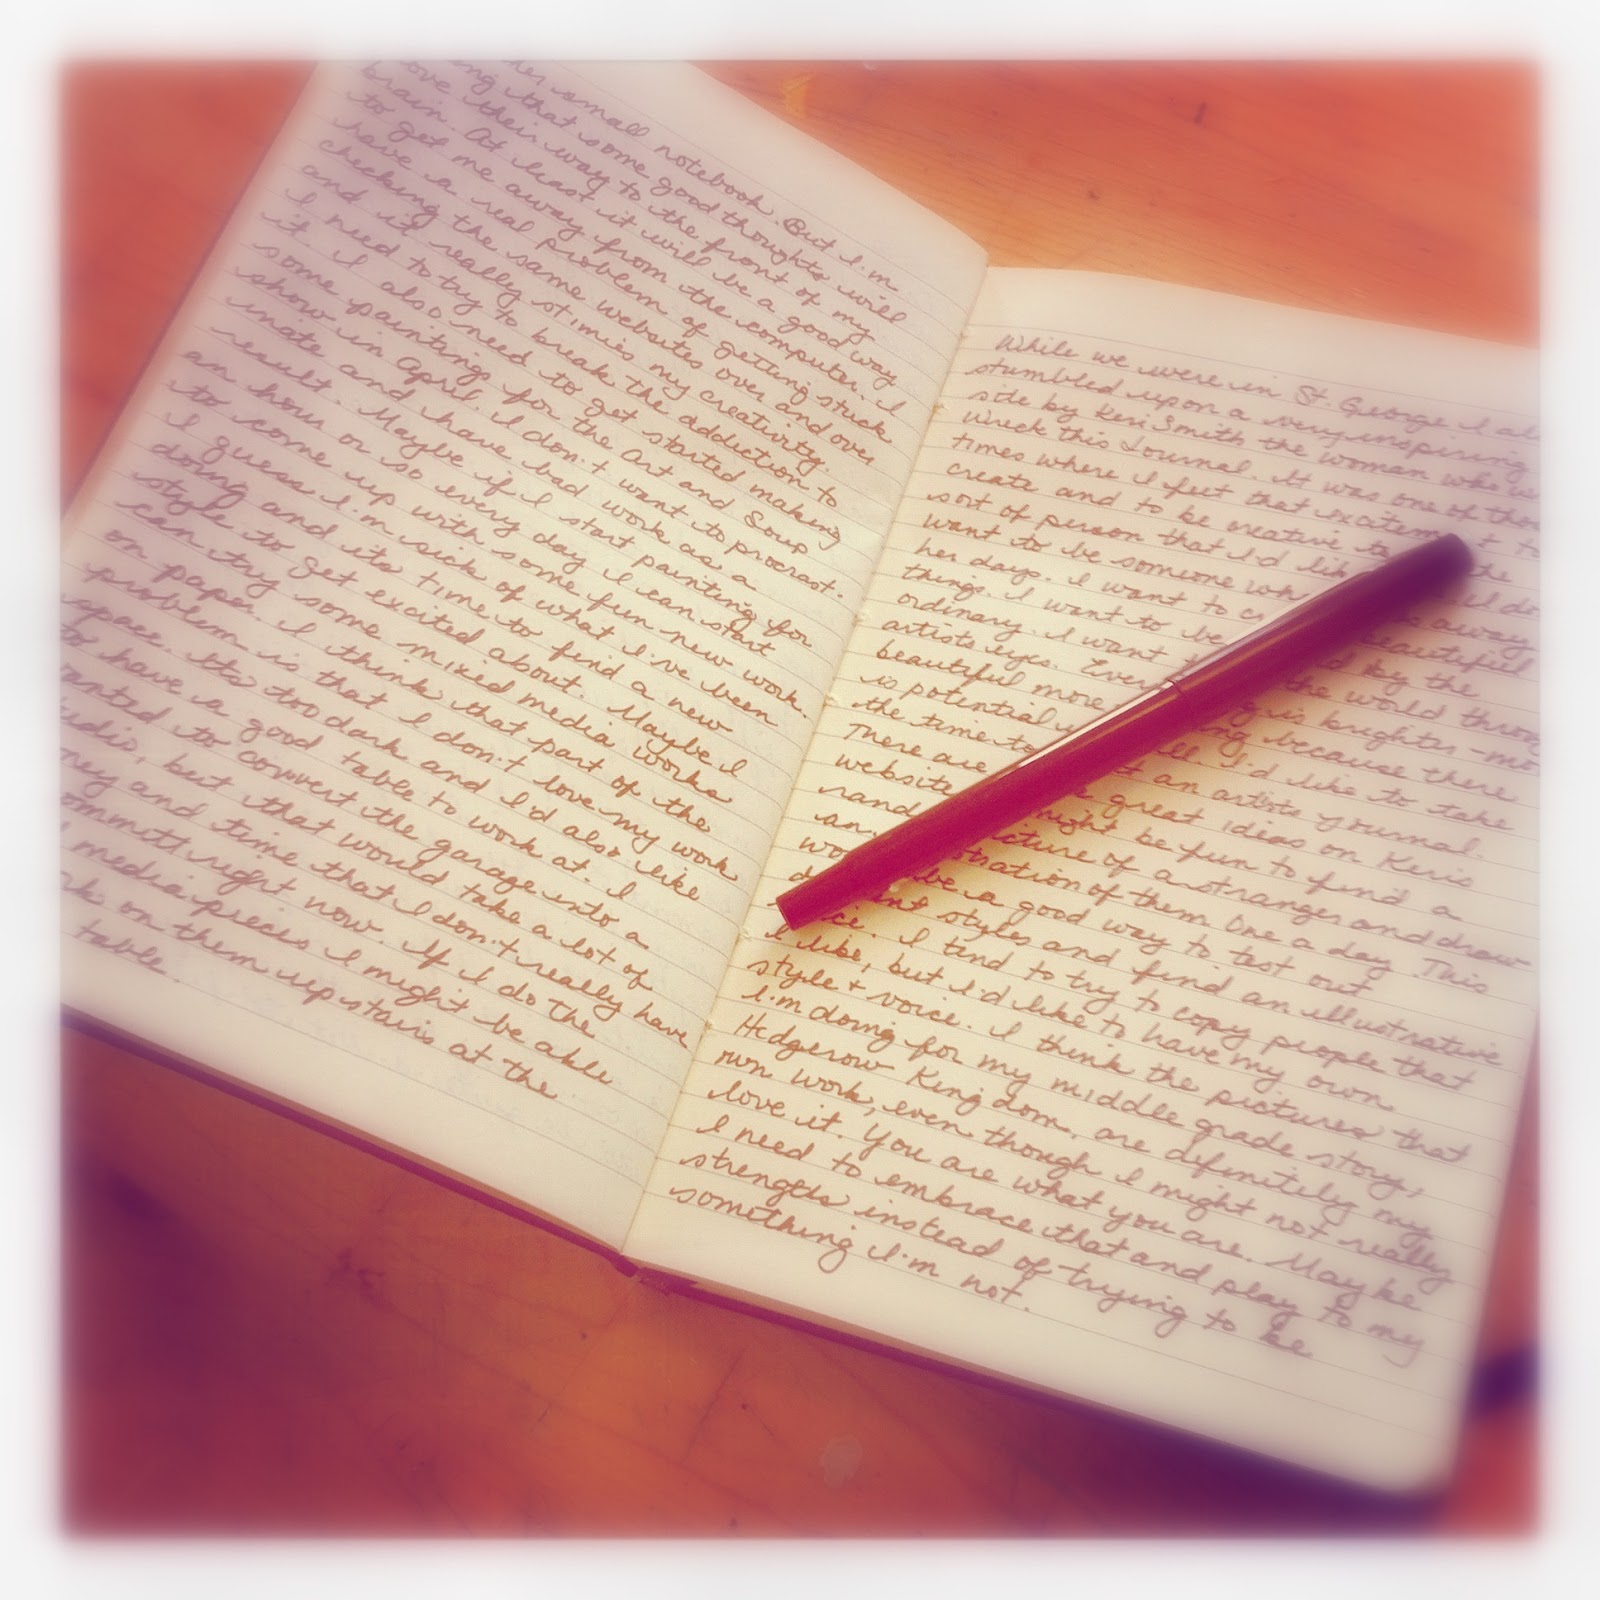 small notebook. But I'm
that some good thoughts will
love their way to the front of my
brain. At least it will be a good way
to get me away from the computer. I
have a real problem of getting stuck
checking the same websites over and over
and it really stimies my creativity.
I need to try to break the addiction to
it. I also need to get started making
some paintings for the Art and Soup
show in April. I don't want to procrast-
inate and have bad work as a
result. Maybe if I start painting for
an hour or so every day I can start
to come up with some fun new work.
I guess I'm sick of what I've been
doing and its time to find a new
style to get excited about. Maybe I
can try some mixed media works
on paper. I think that part of the
problem is that I don't love my work
space. Its too dark and I'd also like
to have a good table to work at. I
wanted to convert the garage into a
but that would take a lot of
and time that I don't really have
right now. If I do the
media pieces I might be able
on them upstairs at the
table.
While we were in St. George I
stumbled upon a very inspiring
site by Keri Smith the woman who
Wreck this Journal. It was one of those
times where I felt that excitem t to
create and to be creative to the
sort of person that I'd li I do
want to be someone wh s away
her days. I want to c beautiful
things. I want to be d by the
ordinary. I want t the world through
artists eyes. Ever g is brighter - mo
beautiful more ing because there
is potential ll. I'd like to take
the time to an artists journal.
There are great ideas on Keris
website might be fun to find a
rand icture of a stranger and draw
an stration of them. One a day. This
wo be a good way to test out
d nt styles and find an illustrative
ice. I tend to try to copy people that
I like, but I'd like to have my own
style + voice. I think the pictures that
I'm doing for my middle grade story,
Hedgerow Kingdom, are definitely my
own work, even though I might not really
love it. You are what you are. Maybe
I need to embrace that and play to my
strengths instead of trying to be
something I'm not.